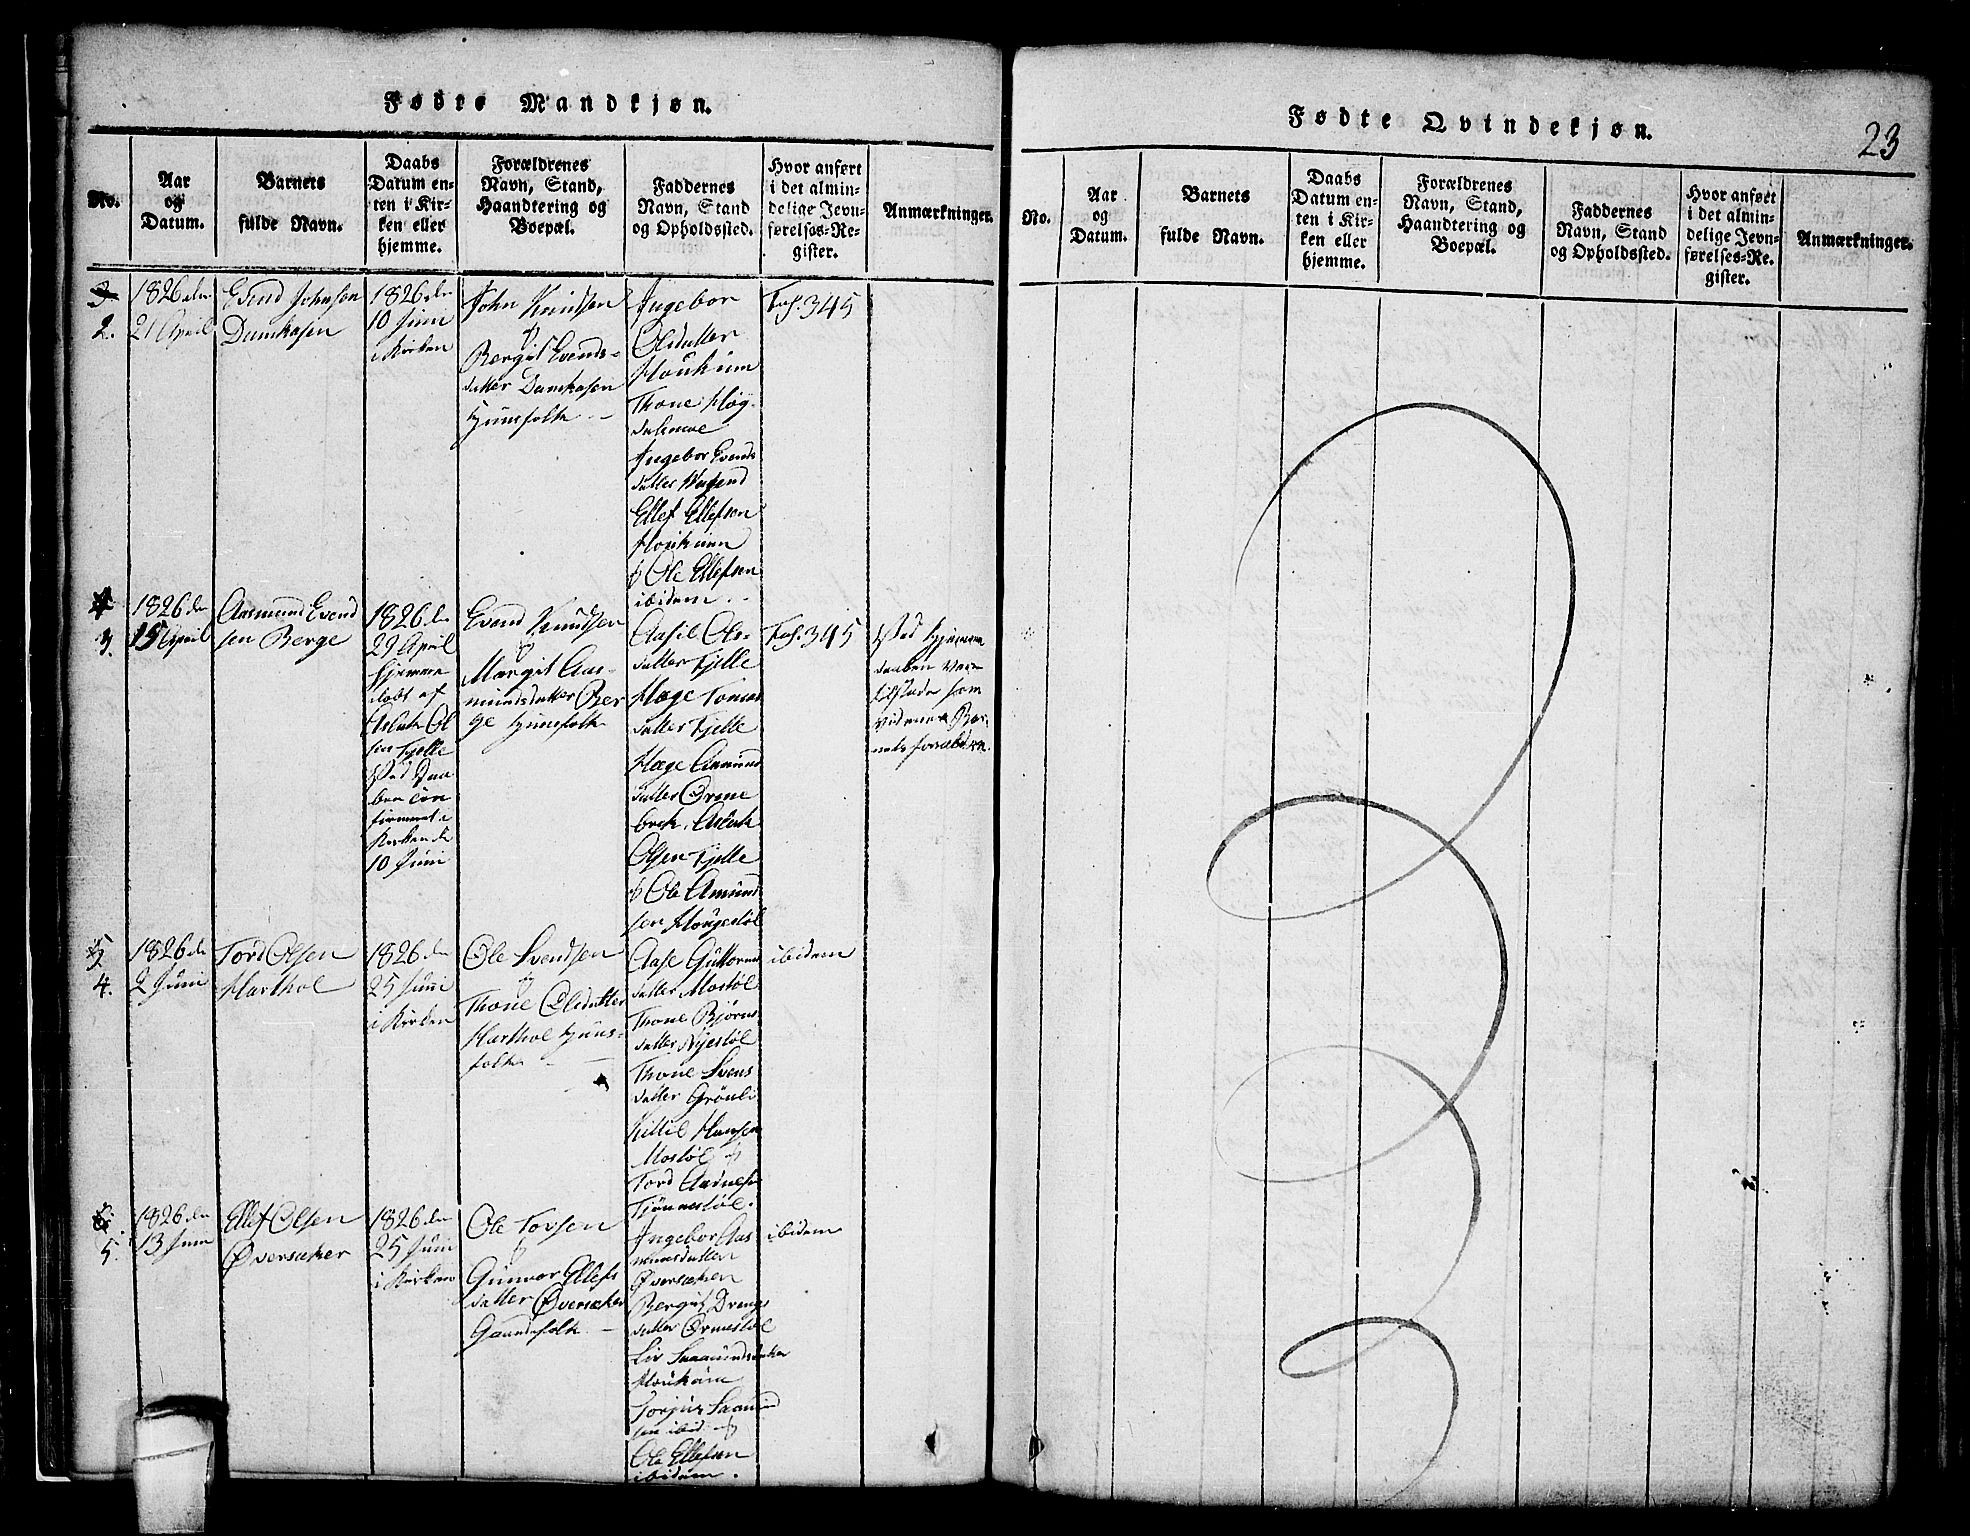 Fødte Mandkjøn.
No.
Aar
og
Datum.
Barnets
fulde Navn.
Daabs
Datum en-
ten i Kir-
ken eller
hjemme.
Forældrenes
Navn, Stand,
Haandtering og
Boepæl.
Faddernes
Navn, Stand
og Opholdssted.
Hvor anført
i det almin-
delige Jevn-
førelses-Re-
gister.
Anmærkninger.
3
2.
1826 den
21 April
Evend Johnsen
Damkasen
1826 den
10 Juni
i Kirken
John Knudsen
&
Bergit Evends-
datter Damkasen
Huusfolk
Ingebor
Olsdatter
Houkum
Thone Høg
dalsmoe
Ingebor Evends
datter
Ellef Ellefsen
Houkum
& Ole Ellefsen
ibidem.
Fol. 345
4
3.
1826 den
15 April
Aasmund Evend
sen Berge
1826 den
29 April
hjemme
døbt af
Aslak Ol
sen Fjelle
Ved Daa
ben con
firmert i
Kirken de
10 Juni
Evend Knudsen
&
Margit Aas-
mundsdatter Ber
ge Huusfolk
Aasil Ols
datter Fjelle
Hæge Tomas
datter Fjelle
Hæge Aamund
datter Orme
brek. Aslak
Olsen Fjelle
& Ole Amund
sen Hougestøl
Fol. 345
Ved hjemme
daaben vare
tilstæde som
vidner Bar
nets forældre.
5
4.
1826 den
2 Juni
Tord Olsen
Harthol
1826 den
25 Juni
i Kirken
Ole Svendsen
&
Thone Olsdatter
Harthol Huus-
folk
Aase Guttorms
datter Mostøl
Thone Bjørns
datter Nyestøl
Thone Svens
datter Grönli
Kittil Hansen
Mostøl &
Tord Aadnesen
Tjönnestøl.
ibidem
6
5.
1826 den
13 Juni
Ellef Olsen
Øversaker
1826 den
25 Juni
i Kirken
Ole Torsen
&
Gunvor Ellefs
datter Øversaker
Gaardfolk
Ingebor Aas
mundsdatter
Øversaker
Bergit Drengs
datter Ormestøl
Liv Saamundsdatter
Houkum
Torjus Saamund
sen ibid. &
Ole Ellefsen
ibidem.
ibidem
Fødte Qvindekjøn.
23
No.
Aar
og
Datum.
Barnets
fulde Navn.
Daabs
Datum en-
ten i Kir-
ken eller
hjemme.
Forældrenes
Navn, Stand,
Haandtering og
Boepæl.
Faddernes
Navn, Stand
og Opholdssted.
Hvor anført
i det almin-
delige Jevn-
førelses-Re-
gister.
Anmærkninger.